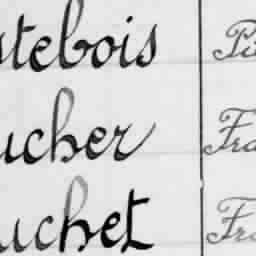 stebois Pi
ucher Fra
uchet Fra